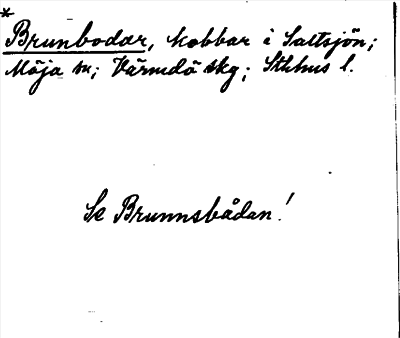 *
Brunbodar, kobbar i Saltsjön;
Möja sn; Värmdö skg; Sthlms l.
Se Brunnsbådan!